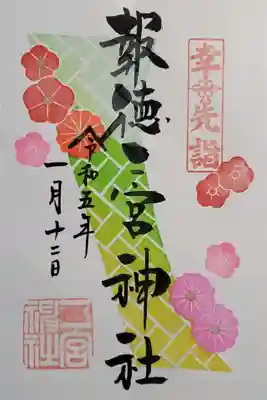 幸先詣
報徳二宮神社
令和五年
一月十二日
二宮
神社